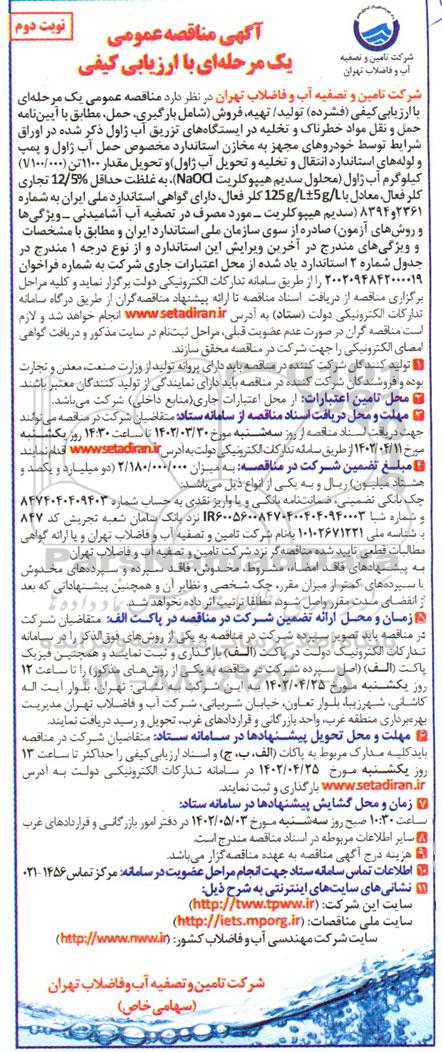 نوبت دوم
شرکت تامین و تصفیه
آب و فاضلاب تهران
آگهی مناقصه عمومی
یک مرحله‌ای با ارزیابی کیفی
شرکت تامین و تصفیه آب و فاضلاب تهران در نظر دارد مناقصه عمومی یک مرحله‌ای
با ارزیابی کیفی (فشرده) تولید/ تهیه، فروش (شامل بارگیری، حمل، مطابق با آیین‌نامه
حمل و نقل مواد خطرناک و تخلیه در ایستگاه‌های تزریق آب ژاول ذکر شده در اوراق
شرایط توسط خودروهای مجهز به مخازن استاندارد مخصوص حمل آب ژاول و پمپ
و لوله‌های استاندارد انتقال و تخلیه و تحویل آب ژاول) و تحویل مقدار ۱۱۰۰تن (۱/۱۰۰/۰۰۰)
کیلوگرم آب ژاول (محلول سدیم هیپوکلریت NaOCl)، به غلظت حداقل 12/5% تجاری
کلر فعال، معادل با 125g/L±5g/L کلر فعال، دارای گواهی استاندارد ملی ایران به شماره
۲۳۶۱و۸۳۹۴ (سدیم هیپوکلریت ـ مورد مصرف در تصفیه آب آشامیدنی ـ ویژگی‌ها
و روش‌های آزمون) صادره از سوی سازمان ملی استاندارد ایران و مطابق با مشخصات
و ویژگی‌های مندرج در آخرین ویرایش این استاندارد و از نوع درجه ۱ مندرج در
جدول شماره ۲ استاندارد یاد شده از محل اعتبارات جاری شرکت به شماره فراخوان
۲۰۰۲۰۹۴۸۴۲۰۰۰۰۱۹ را از طریق سامانه تدارکات الکترونیکی دولت برگزار نماید و کلیه مراحل
برگزاری مناقصه از دریافت اسناد مناقصه تا ارائه پیشنهاد مناقصه‌گران از طریق درگاه سامانه
تدارکات الکترونیکی دولت (ستاد) به آدرس www.setadiran.ir انجام خواهد شد و لازم
است مناقصه گران در صورت عدم عضویت قبلی، مراحل ثبت‌نام در سایت مذکور و دریافت گواهی
امضای الکترونیکی را جهت شرکت در مناقصه محقق سازند.
۱ تولید کنندگان شرکت کننده در مناقصه باید دارای پروانه تولید از وزارت صنعت، معدن و تجارت
بوده و فروشندگان شرکت کننده در مناقصه باید دارای نمایندگی از تولید کنندگان معتبر باشند.
۲ محل تامین اعتبارات: از محل اعتبارات جاری (منابع داخلی) شرکت می‌باشد.
۳ مهلت و محل دریافت اسناد مناقصه از سامانه ستاد: متقاضیان شرکت در مناقصه می‌توانند
جهت دریافت اسناد مناقصه از روز سه‌شنبه مورخ ۱۴۰۲/۰۳/۳۰ تا ساعت ۱۴:۳۰ روز یکشنبه
مورخ ۱۴۰۲/۰۴/۱۱ از طریق سامانه تدارکات الکترونیکی دولت به آدرس www.setadiran.ir اقدام نمایند.
۴ مبلغ تضمین شرکت در مناقصه: به میزان ۲/۱۸۰/۰۰۰/۰۰۰ (دو میلیارد و یکصد و
هشتاد میلیون) ریال و به یکی از انواع ذیل می‌باشد:
چک بانکی تضمینی، ضمانت‌نامه بانکی و یا واریز نقدی به حساب شماره ۸۴۷۴۰۴۰۴۰۹۴۰۳
و شماره شبا نزد بانک سامان شعبه تجریش کد ۸۴۷
با شناسه ملی ۱۰۱۰۲۶۷۱۲۲۱ به‌نام شرکت تامین و تصفیه آب و فاضلاب تهران و یا ارائه گواهی
مطالبات قطعی تایید شده مناقصه گر نزد شرکت تامین و تصفیه آب و فاضلاب تهران
به پیشنهادهای فاقد امضاء، مشروط، مخدوش، فاقد سپرده و سپرده‌های مخدوش
یا سپرده‌های کمتر از میزان مقرر، چک شخصی و نظایر آن و همچنین پیشنهاداتی که بعد
از انقضای مدت مقرر واصل شود، مطلقا ترتیب اثر داده نخواهد شد.
۵ زمان و محل ارائه تضمین شرکت در مناقصه در پاکت الف: متقاضیان شرکت
در مناقصه باید تصویر سپرده شرکت در مناقصه به یکی از روش‌های فوق‌الذکر را در سامانه
تدارکات الکترونیک دولت در پاکت (الف) بارگذاری و ثبت نمایند و همچنین فیزیک
پاکت (الف) (اصل سپرده شرکت در مناقصه به یکی از روش‌های مذکور) را تا ساعت ۱۲
روز یکشنبه مورخ ۱۴۰۲/۰۴/۲۵ به این شرکت به نشانی: تهران، بلوار آیت اله
کاشانی، شهرزیبا، بلوار تعاون، خیابان شربیانی، شرکت آب و فاضلاب تهران مدیریت
بهره‌برداری منطقه غرب، واحد بازرگانی و قراردادهای غرب، تحویل و رسید دریافت نمایند.
۶ مهلت و محل تحویل پیشنهادها در سامانه ستاد: متقاضیان شرکت در مناقصه
باید کلیه مدارک مربوط به پاکات (الف، ب، ج) و اسناد ارزیابی کیفی را حداکثر تا ساعت ۱۳
روز یکشنبه مورخ ۱۴۰۲/۰۴/۲۵ در سامانه تدارکات الکترونیکی دولت به آدرس
www.setadiran.ir بارگذاری و ثبت نمایند.
۷ زمان و محل گشایش پیشنهادها در سامانه ستاد:
ساعت ۱۰:۳۰ صبح روز سه‌شنبه مورخ ۱۴۰۲/۰۵/۰۳ در دفتر امور بازرگانی و قراردادهای غرب
۸ سایر اطلاعات مربوطه در اسناد مناقصه مندرج است.
۹ هزینه درج آگهی مناقصه به عهده مناقصه‌گزار می‌باشد.
۱۰ اطلاعات تماس سامانه ستاد جهت انجام مراحل عضویت در سامانه: مرکز تماس ۱۴۵۶-۰۲۱
۱۱ نشانی‌های سایت‌های اینترنتی به شرح ذیل:
سایت این شرکت: (http://tww.tpww.ir)
سایت ملی مناقصات: (http://iets.mporg.ir)
سایت شرکت مهندسی آب و فاضلاب کشور: (http://www.nww.ir)
شرکت تامین و تصفیه آب و فاضلاب تهران
(سهامی خاص)